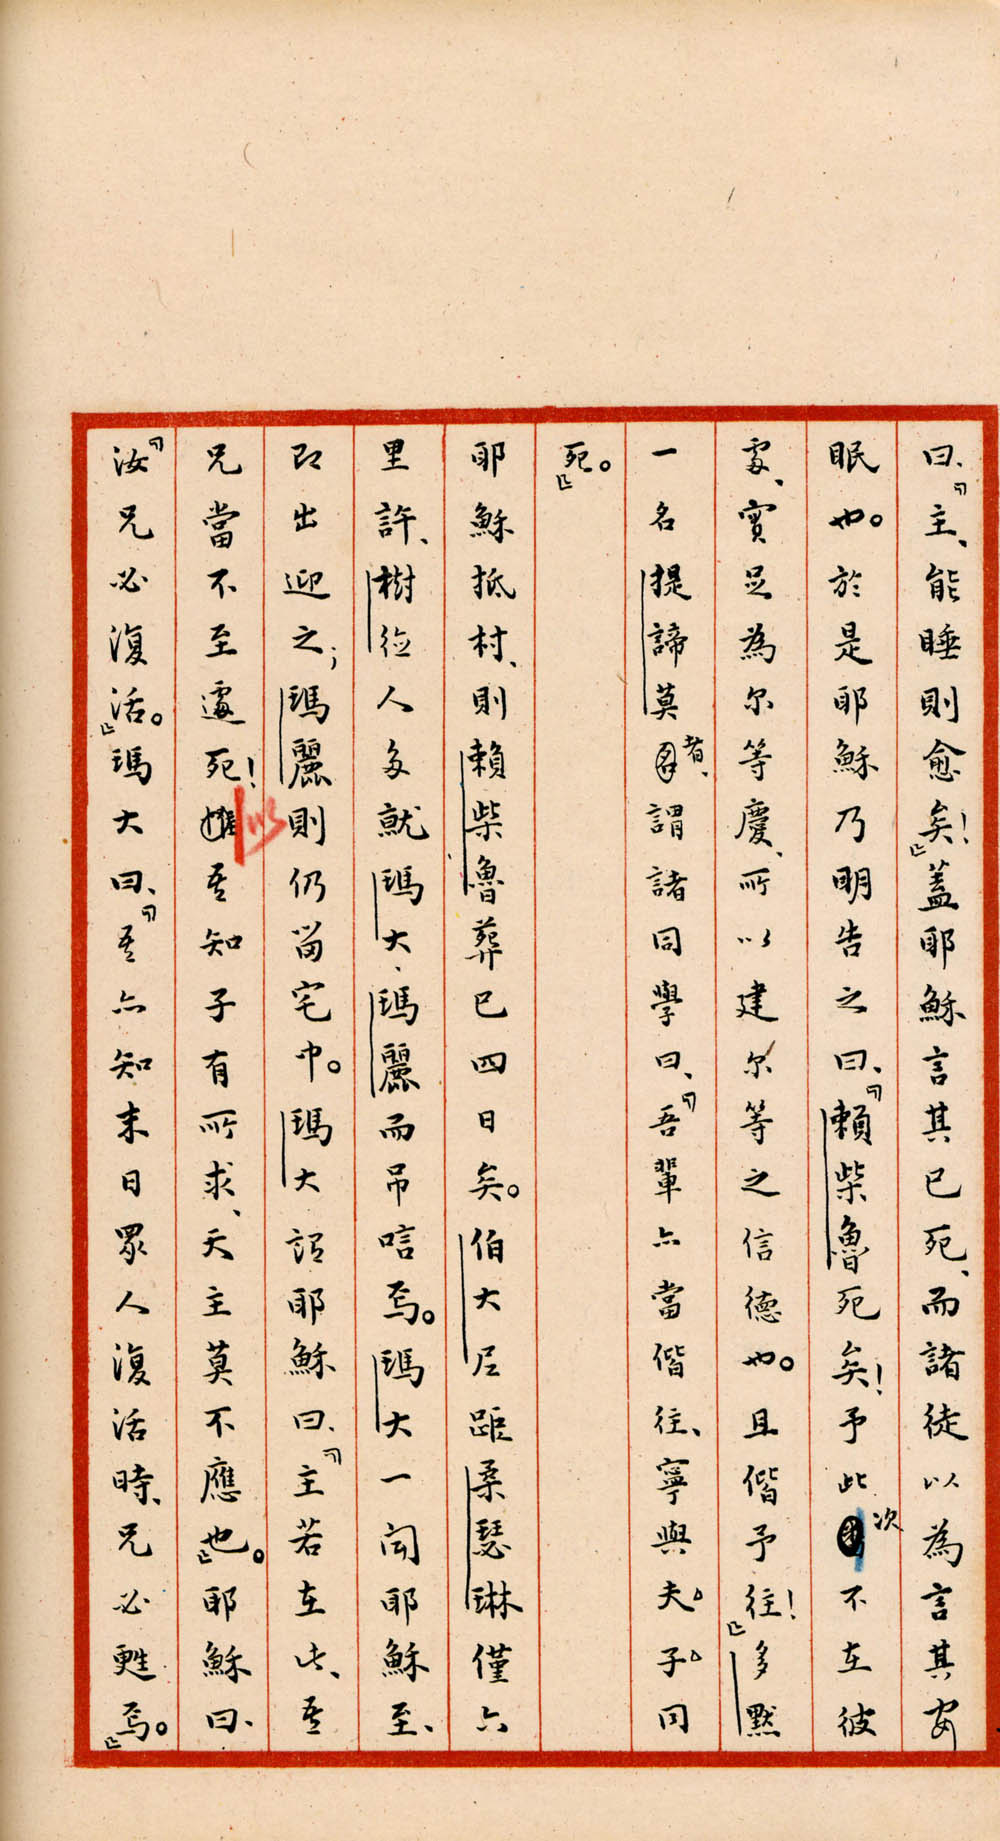 曰、「主、能睡則愈矣！」蓋耶穌言其已死、而諸徒以為言其安
眠也。於是耶穌乃明告之曰、「賴柴魯死矣！予此次不在彼
處、實足為尔等慶、所以建尔等之信德也。且偕予往！」多默
一名提諦莫者、謂諸同學曰、「吾輩亦當偕往、寧與夫子同
死。」
耶穌抵村、則賴柴魯葬已四日矣。伯大尼距柔瑟琳僅六
里許、樹德人多就瑪大、瑪麗而吊唁焉。瑪大一聞耶穌至、
即出迎之；瑪麗則仍留宅中。瑪大謂耶穌曰、「主若在此、吾
兄當不至遽死！以吾知子有所求、天主莫不應也。」耶穌曰、
「汝兄必復活。」瑪大曰、「吾亦知末日眾人復活時、兄必甦焉。」